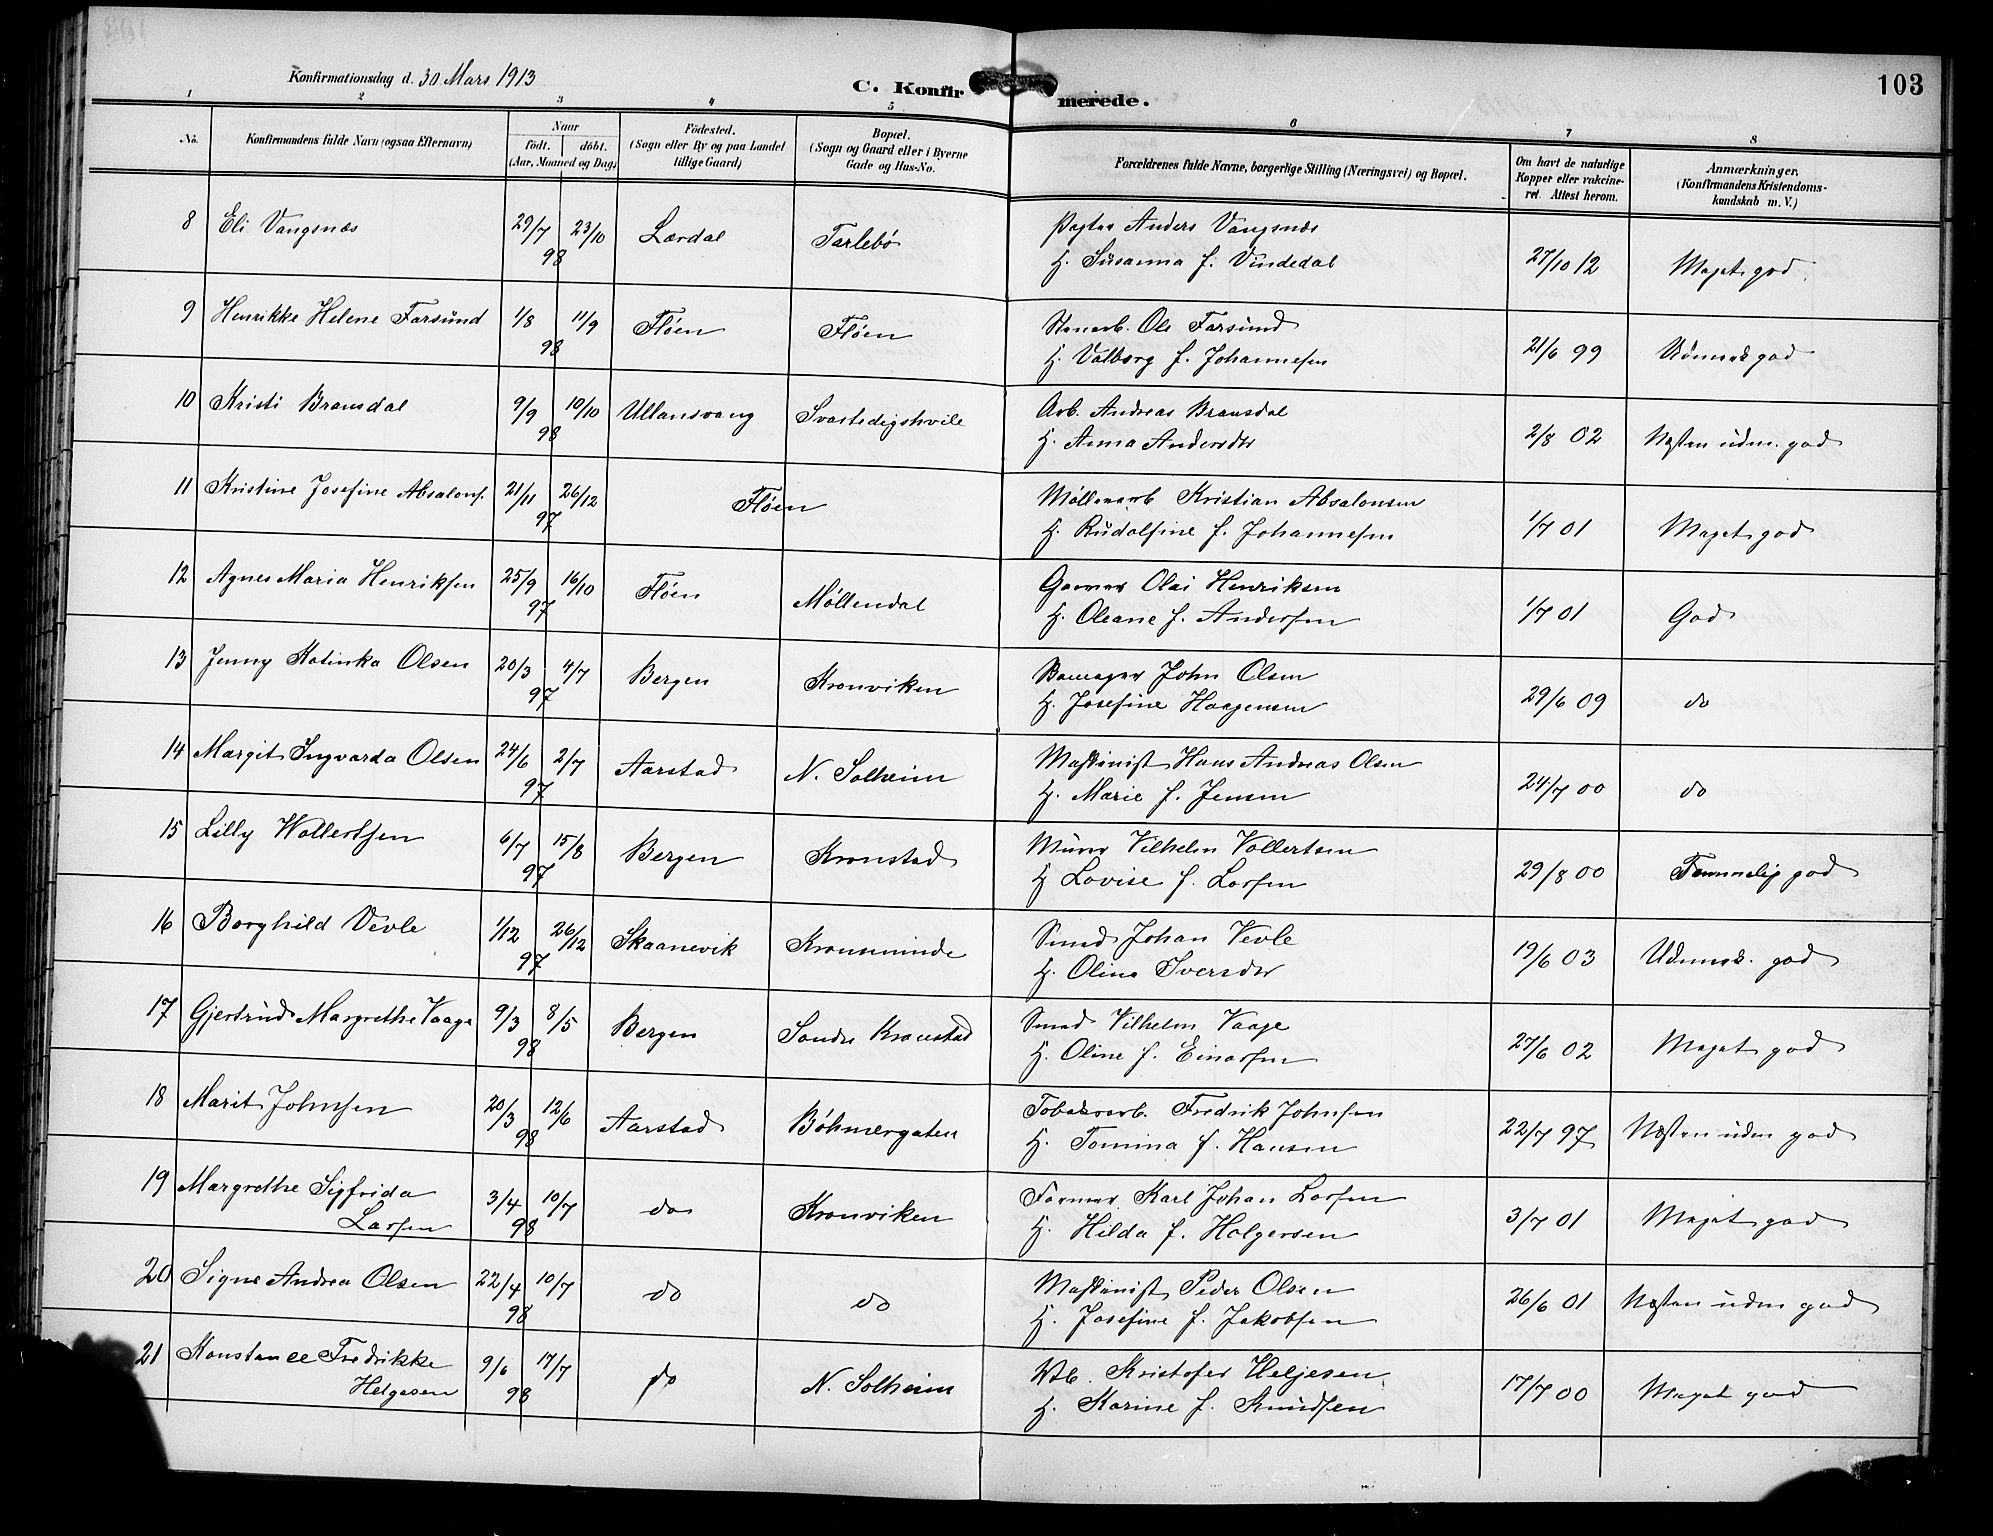 103
Konfirmationsdag d. 30 Mars 1913
C. Konfirmerede.
1 2 3 4 5 6 7 8
No. Konfirmandens fulde Navn (ogsaa Efternavn) Naar født. døbt. (Aar, Maaned og Dag) Födested. (Sogn eller By og paa Landet tillige Gaard) Bopæl. (Sogn og Gaard eller i Byerne Gade og Hus-No. Forældrenes fulde Navne, borgerlige Stilling (Næringsvei) og Bopæl. Om havt de naturlige Kopper eller vakcineret. Attest herom. Anmærkninger. (Konfirmandens Kristendomskundskab m. V.)
8 Eli Vangsnæs 29/7 23/10 98 Lærdal Tarlebø Anders Vangsnæs
H. Susanna f. Vindedal 27/10 12 Meget god
9 Henrikke Helene Farsund 1/8 11/9 98 Fløen Fløen Stenarb. Ole Farsund
H. Valborg f. Johannesen 21/6 99 Udmerk god
10 Kristi Bransdal 9/9 10/10 98 Ullensvang Svartedigshvile Arb. Andreas Bransdal
H. Anna Andersdtr 2/8 02 Næsten udm. god
11 Kristine Josefine Absalons. 21/11 26/12 97 Fløen Møllerarb Kristian Absalonsen
H. Rudolfine f. Johannesen 1/7 01 Meget god
12 Agnes Maria Henriksen 25/9 16/10 97 Fløen Møllendal Garver Olai Henriksen
H. Oleane f. Andersen 1/7 01 God
13 Jenny Katinka Olsen 20/3 4/7 97 Bergen Kronviken John Olsen
H. Josefine Haagensen 29/6 09 do
14 Margit Ingvarda Olsen 24/6 2/7 97 Aarstad N. Solheim Maskinist Hans Andreas Olsen
H. Marie f. Jensen 24/7 00 do
15 Lilly Wollertsen 6/7 15/8 97 Bergen Kronstad Murer Vilhelm Vollertsen
H Lovise f. Larsen 29/8 00 Temmelig god
16 Borghild Vevle 1/12 26/12 97 Skaanevik Kronsminde Smed Johan Vevle
H. Olina Iversdtr 19/6 03 Udmrk. god
17 Gjertrud Margrethe Vaage 9/3 8/5 98 Bergen Søndre Kronstad Smed Vilhelm Vaage
H. Oline f. Einarsen 27/6 02 Meget god
18 Marit Johnsen 20/3 12/6 98 Aarstad Bøhmergaten Tobaksarb. Fredrik Johnsen
H. Tomina f. Hansen 22/7 97 Næsten udm god
19 Margrethe Sigfrida Larsen 3/4 10/7 98 do Kronviken Former Karl Johan Larsen
H. Hilda f. Holgersen 3/7 01 Meget god
20 Signe Andrea Olsen 22/4 10/7 98 do do Maskinist Peder Olsen
H. Josefine f. Jakobsen 26/6 01 Næsten udm god
21 Konstance Fredrikke Helgesen 9/6 17/7 98 do N. Solheim Kristofer Heljesen
H. Karine f. Knudsen 17/7 00 Meget god